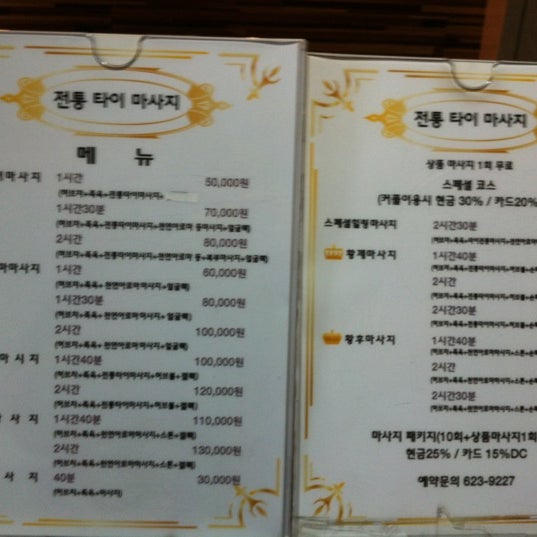 전통 타이 마사지
메 뉴
마사지 1시간 50,000원
(허브차+족욕+전통타이마사지+
1시간30분 70,000원
2시간 80,000원
마사지 1시간 60,000원
(허브차+족욕+천연아로마마사지+얼굴팩)
1시간30분 80,000원
(허브차+족욕+천연아로마마사지+얼굴팩)
2시간 100,000원
(허브차+족욕+천연아로마마사지+얼굴팩)
마 시 지 1시간40분 100,000원
(허브차+족욕+전통타이마사지+허브볼+얼팩)
2시간 120,000원
(허브차+족욕+전통타이마사지+허브볼+얼팩)
사 지 1시간40분 110,000원
(허브차+족욕+천연아로마마사지+스톤+얼팩)
2시간 130,000원
(허브차+족욕+천연아로마마사지+스톤+얼팩)
사 지 40분 30,000원
(허브차+족욕+마사지)
전통 타이 마사지
상품 마사지 1회 무료
스페셜 코스
(커플이용시 현금 30% / 카드20%
스페셜힐링마사지 2시간30분
황제마사지 1시간40분
2시간
2시간30분
황후마사지 1시간40분
2시간
2시간30분
마사지 패키지(10회+상품마사지1회
현금25% / 카드 15%DC
예약문의 623-9227